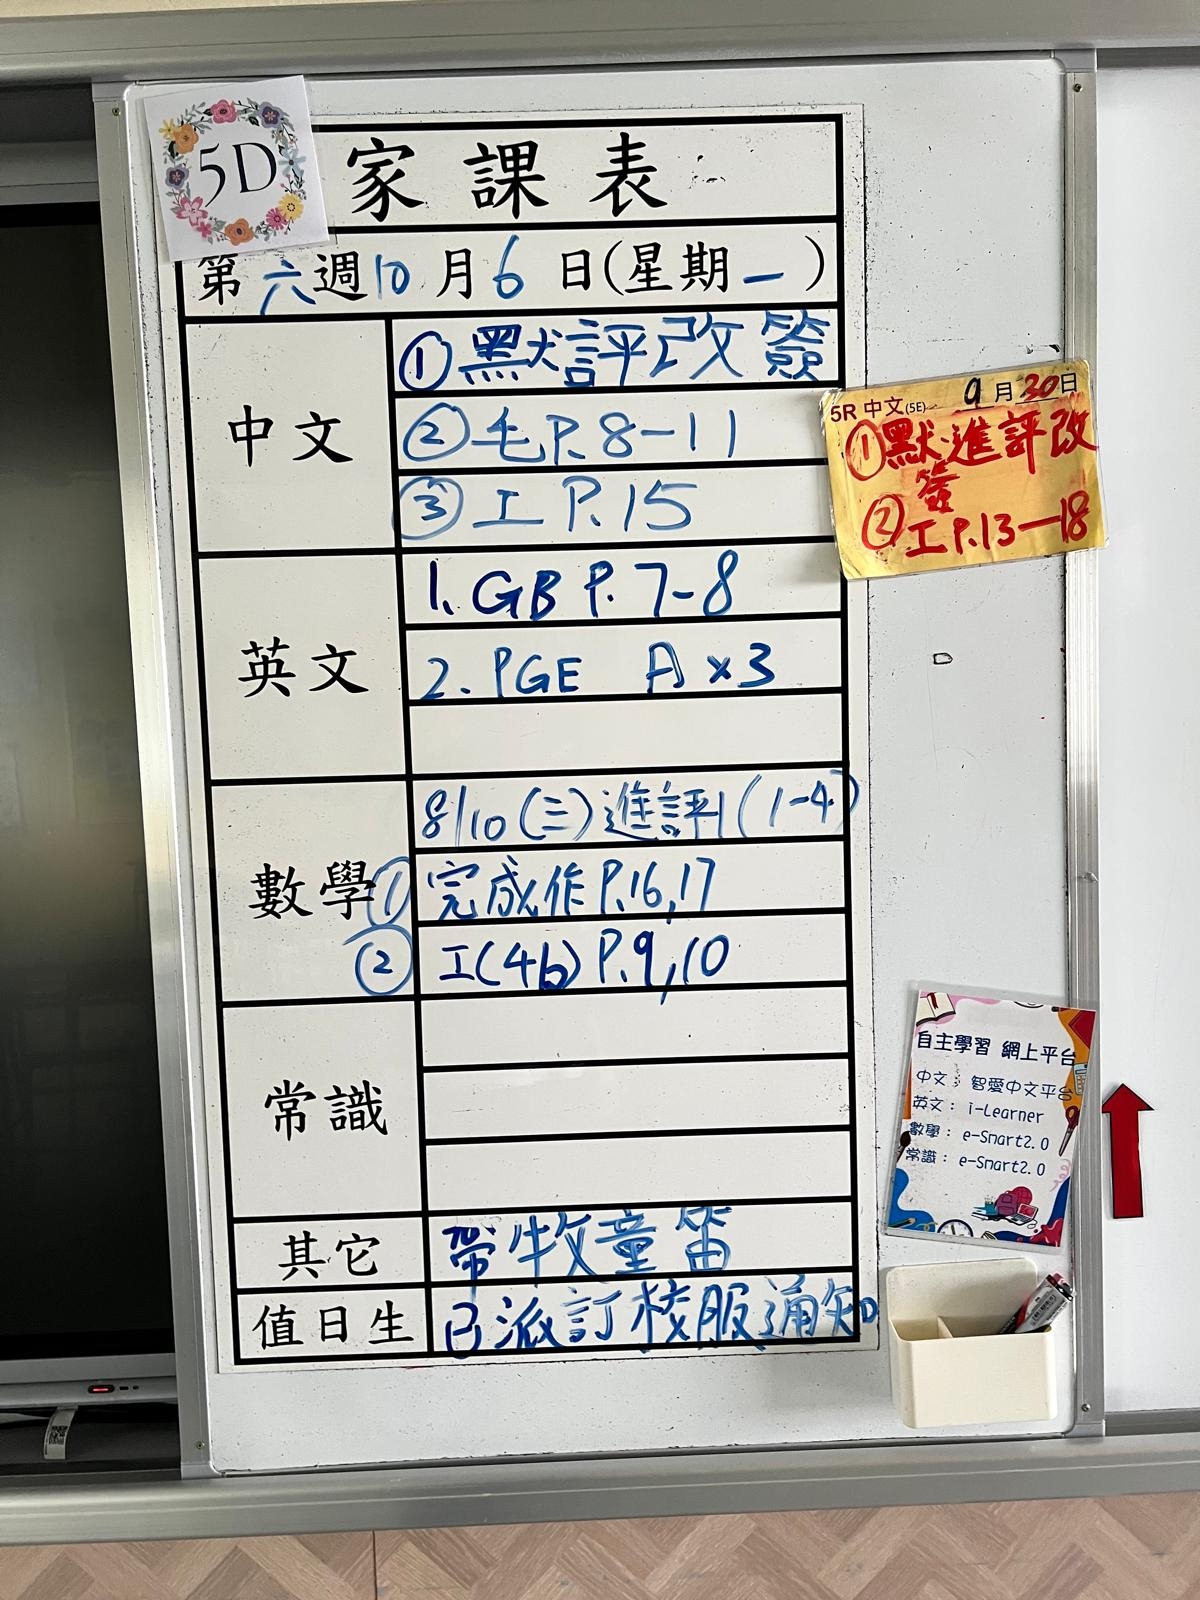 5D
家課表
第六週10月6日(星期一)
中文
①默評改簽
②毛P.8-11
③工P.15
5R 中文(5E) 9月30日
①默進評改
簽
②工P.13—18
英文
1. GB P.7-8
2. PGE A×3
數學
8/10(三)進評1(1-4)
①完成作P.16,17
②工(4b)P.9,10
常識
其它
帶牧童笛
值日生
已派訂校服通知
自主學習 網上平台
中文: 智愛中文平台
英文: i-Learner
數學: e-Smart2.0
常識: e-Smart2.0